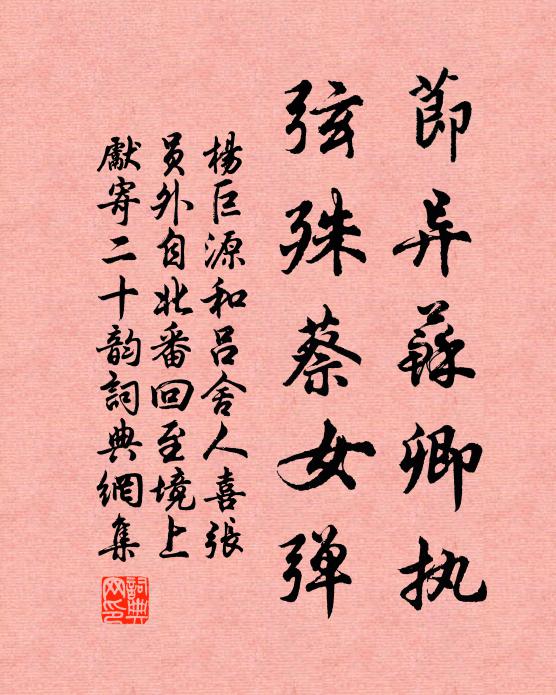 節异蘇卿执
弦殊蔡女弹
楊巨源和吕舍人喜張
员外自北番回至境上
獻寄二十韵詞典網集
詞典網印